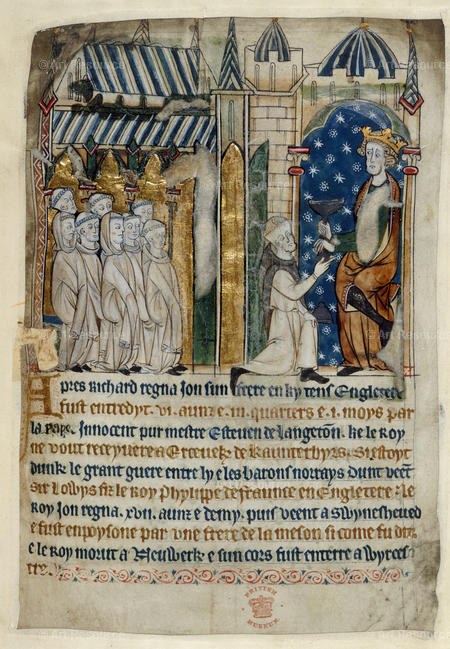 Apres Richard regna Jon sun frere en ky tens Engletere
fust entredyt .vi. aunz e .iii. quarters e .i. moys par
la Pape Innocent pur mestre Esteven de Langetoun . ke le Roy
ne vout receyvere a Erceveke de Kaunterbyrs . si estoyt
dunk le grant guere entre ly e les barons norrays dunt veent
Sir Lowys fiz le Roy Phylippe de fraunce en Engletere . le
Roy Jon regna .xvii. aunz e demy . puis veent a Swynesheued
e fust enpoysone par une frere de la meson si come fu dit
e le Roy morut a Newerk e sun cors fust enterre a Wyrces
tre
BRITISH
MUSEUM
Art Resource